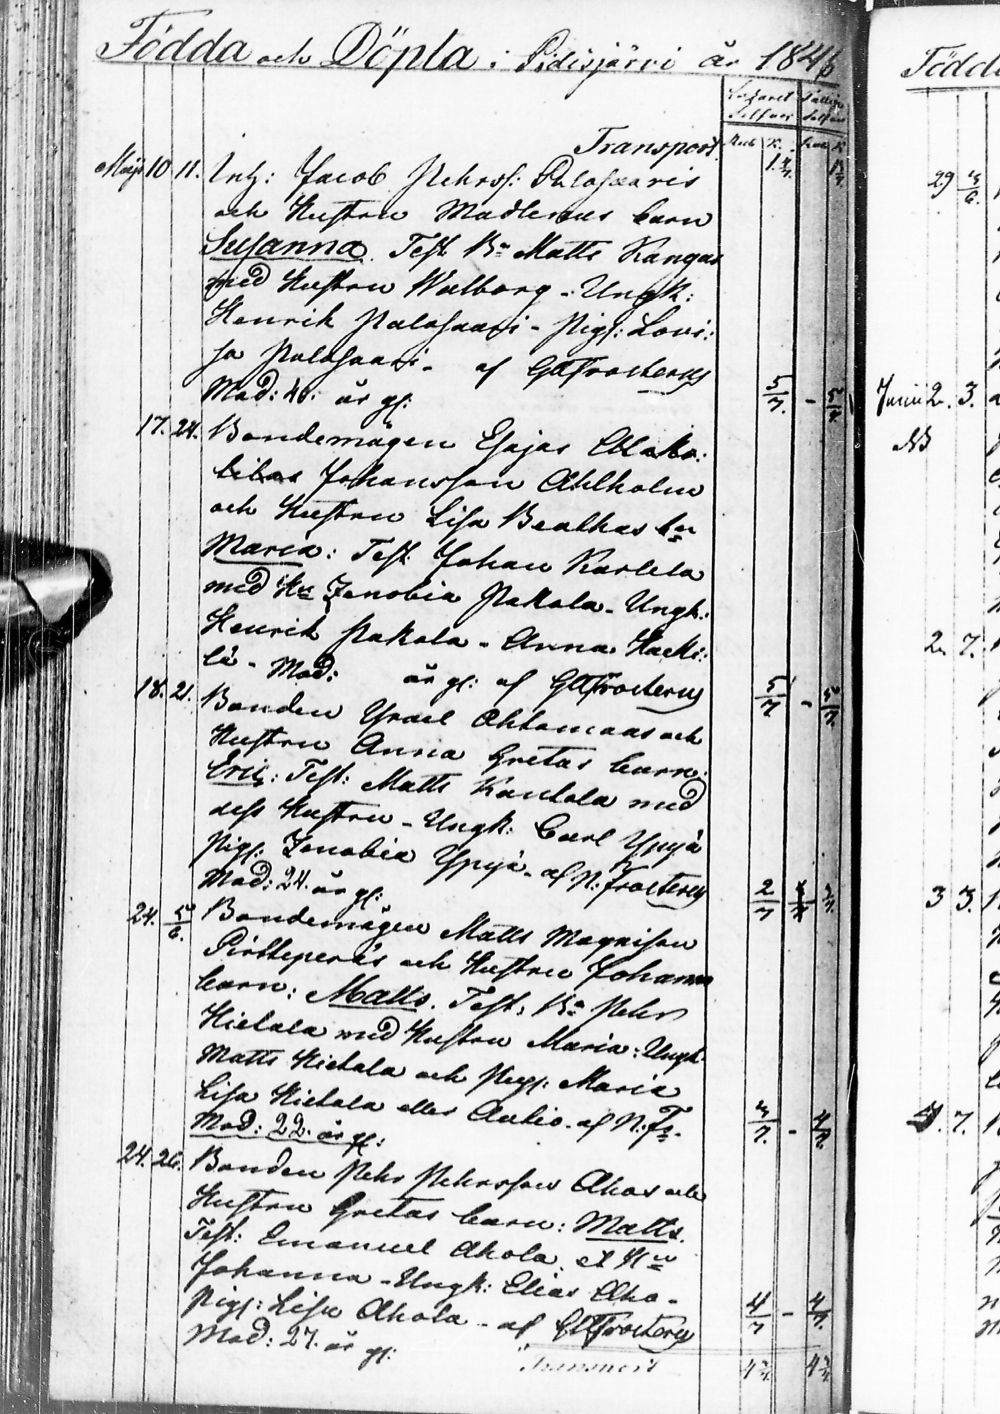 Födda och Döpta i Pidisjärvi år 1846
Transport
Maji 10 11. Inh: Jacob Pehrss: Palosaaris
och Hustru Madlenas barn
Susanna. Test. Bn Matts Kangas
med Hustru Walborg - Ungk:
Henrik Palosaari - Pig: Lovi:
sa Palosaari - af GAFrosterus
Mod: 40: år gl: 5/7. - 5/7
17. 24. Bondemågen Esajas
Johansson Ahlholm
och Hustru Lisa Brealkas bn
Maria: Test. Johan Karlela
med Hu Zenobia Pakola - Ungk:
Henrik Pakola - Anna Hacki:
lä - Mod: år gl: af GAFrosterus 5/7 - 5/7
18. 21. Bonden Ysrael Ahlomaas och
Hustru Anna Gretas barn:
Eric: Test: Matts Kantola med
dess Hustru - Ungk: Carl Ypyä
Pig: Zenobia Ypyä - af N: Frosterus
Mod: 24. år gl: 2/7
24. 5/6. Bondemågen Matts Magnisson
Pirttiperäs och Hustru Johannas
barn: Matts. Test. Bn Pehr
Hietala med Hustru Maria: Ungk
Matts Hietala och Pig: Maria
Lisa Hietala eller Autio. af N: Fr.
Mod: 22. år gl:
24. 26. Bonden Pehr Pehrsson Ahos och
Hustru Gretas barn: Matts.
Test: Emanuel Ahola et Hu
Johanna - Ungk: Elias Aho -
Pig: Lisa Ahola - af GAFrosterus 4/7 - 4/7.
Mod: 27. år gl:
Transport
Födda
29
Junii 2. 3.
NB
2. 7.
3 3.
4. 7.